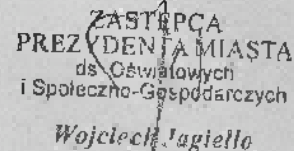 ZASTĘPCA
PREZYDENTA MIASTA
ds Oświatowych
i Społeczno-Gospodarczych
Wojciech Jagiełło